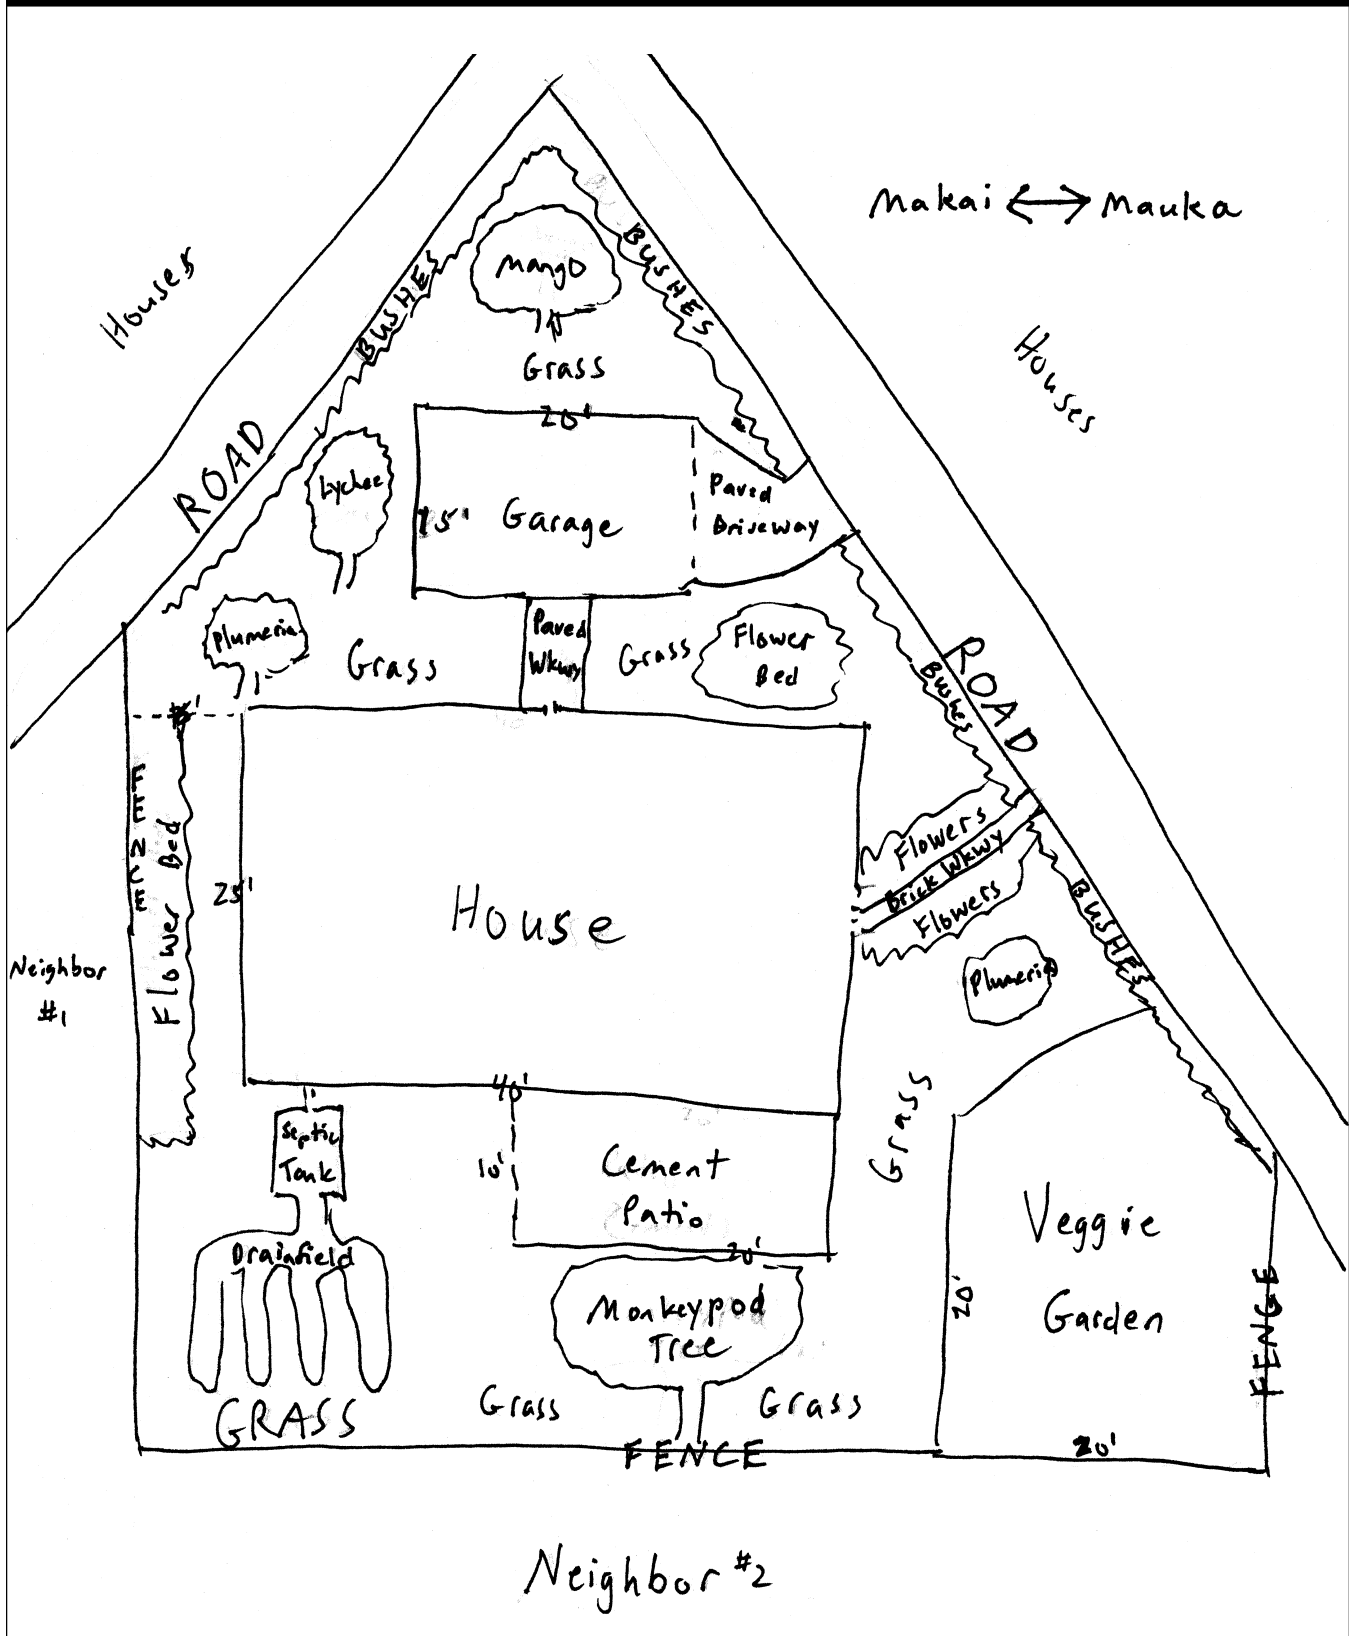 Makai ↔ Mauka
Houses
BUSHES
BUSHES
Mango
Houses
Grass
20'
ROAD
Lychee
15'
Garage
Paved
Driveway
Plumeria
Grass
Paved
Wkwy
Grass
Flower
Bed
ROAD
Bushes
FENCE
Flower Bed
25'
House
Flowers
Brick Wkwy
Flowers
BUSHES
Neighbor
#1
Plumeria
40'
Septic
Tank
10'
Cement
Patio
20'
Grass
Drainfield
Monkeypod
Tree
Veggie
Garden
20'
FENCE
GRASS
Grass
Grass
FENCE
20'
Neighbor #2